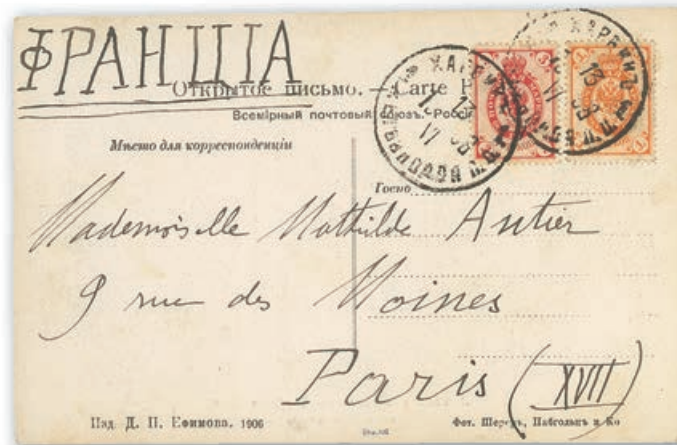 ФРАНЦIА
Открытое письмо. — Carte
Всемірный почтовый Союзъ. Россія
Мѣсто для корреспонденціи
ХАРБИНЪ
13
VI
ХАРБИНЪ
13
VI
Mademoiselle Mathilde Antier
9 rue des Moines
Paris (XVII)
Изд. Д. П. Ефимова. 1906
Фот. Шереръ, Набгольцъ и Ко